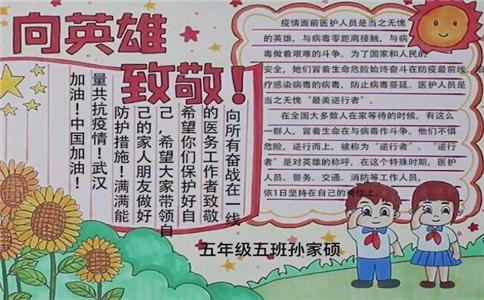 向英雄
致敬！
向所有奋战在一线
的医务工作者致敬
希望你们保护好自
己，希望大家带领自
己的家人朋友做好
防护措施！满满能
量共抗疫情！武汉
加油！中国加油！
疫情面前医护人员是当之无愧
的英雄，与病毒零距离接触，与病
毒做着艰难的斗争。为了国家和人民的
安全，她们冒着生命危险始终奋斗在防疫最前线，
疗感染病毒的病毒，防止病毒蔓延。医护人员是
当之无愧“最美逆行者”。
在全国大多数人在家等待的时候，有这么
一群人，冒着生命在与病毒作斗争。他们不惧
危险，逆行而上，被称为“逆行者”。“逆行
者”是对英雄的称呼，在这个特殊时期，医护
人员、警务、交通、消防等工作人员，
依1日坚持在自己的岗位上。
五年级五班孙家硕